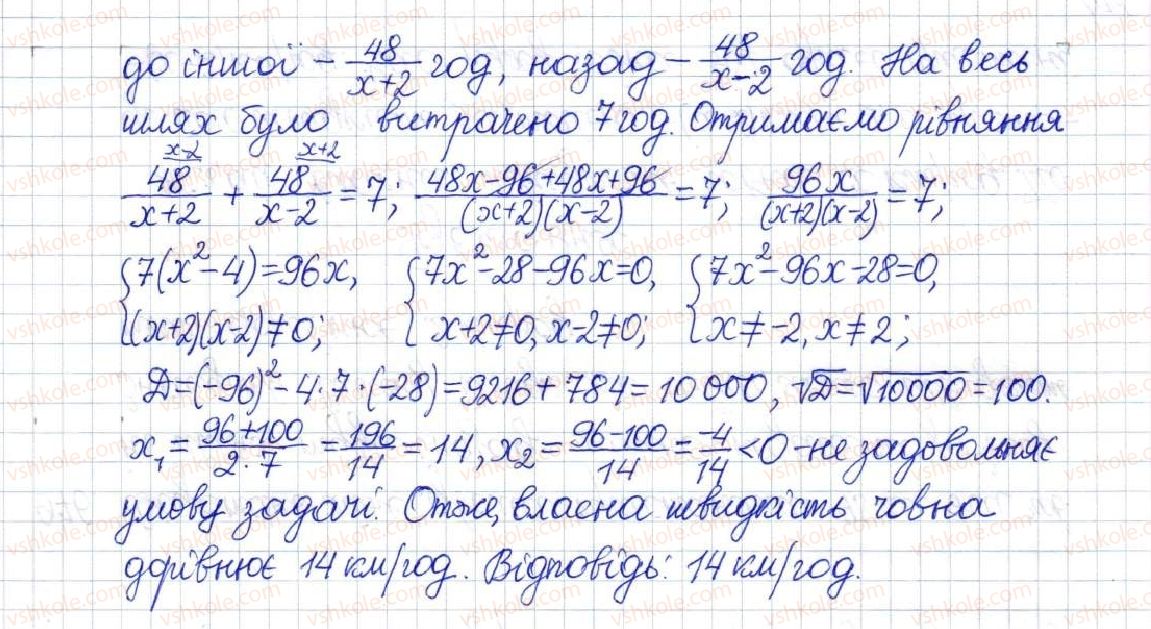 до іншої – 48/(x+2) год, назад – 48/(x-2) год. На весь
шлях було витрачено 7 год. Отримаємо рівняння
48/(x+2) (x-2) + 48/(x-2) (x+2) = 7; (48x-96+48x+96)/((x+2)(x-2)) = 7; 96x/((x+2)(x-2)) = 7;
{7(x²-4)=96x, {7x²-28-96x=0, {7x²-96x-28=0,
(x+2)(x-2)≠0; x+2≠0, x-2≠0; x≠-2, x≠2;
Д=(-96)²-4·7·(-28)=9216+784=10000, √Д=√10000=100.
x₁=(96+100)/(2·7)=196/14=14, x₂=(96-100)/14=-4/14<0 - не задовольняє
умову задачі. Отже, власна швидкість човна
дорівнює 14 км/год. Відповідь: 14 км/год.
vshkole.com